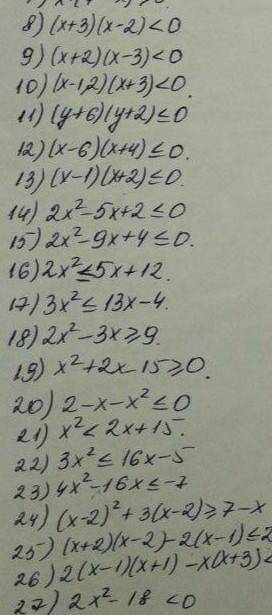 8) (x+3)(x-2)<0
9) (x+2)(x-3)<0
10) (x-1,2)(x+3)<0.
11) (y+6)(y+2)≤0
12) (x-6)(x+4)≤0.
13) (x-1)(x+2)≤0.
14) 2x²-5x+2≤0
15) 2x²-9x+4≤0.
16) 2x²≤5x+12.
17) 3x²≤13x-4.
18) 2x²-3x≥9.
19) x²+2x-15≥0.
20) 2-x-x²≤0
21) x²<2x+15.
22) 3x²≤16x-5
23) 4x²-16x≤-7
24) (x-2)²+3(x-2)≥7-x
25) (x+2)(x-2)-2(x-1)≤2
26) 2(x-1)(x+1)-x(x+3)<
27) 2x²-18<0